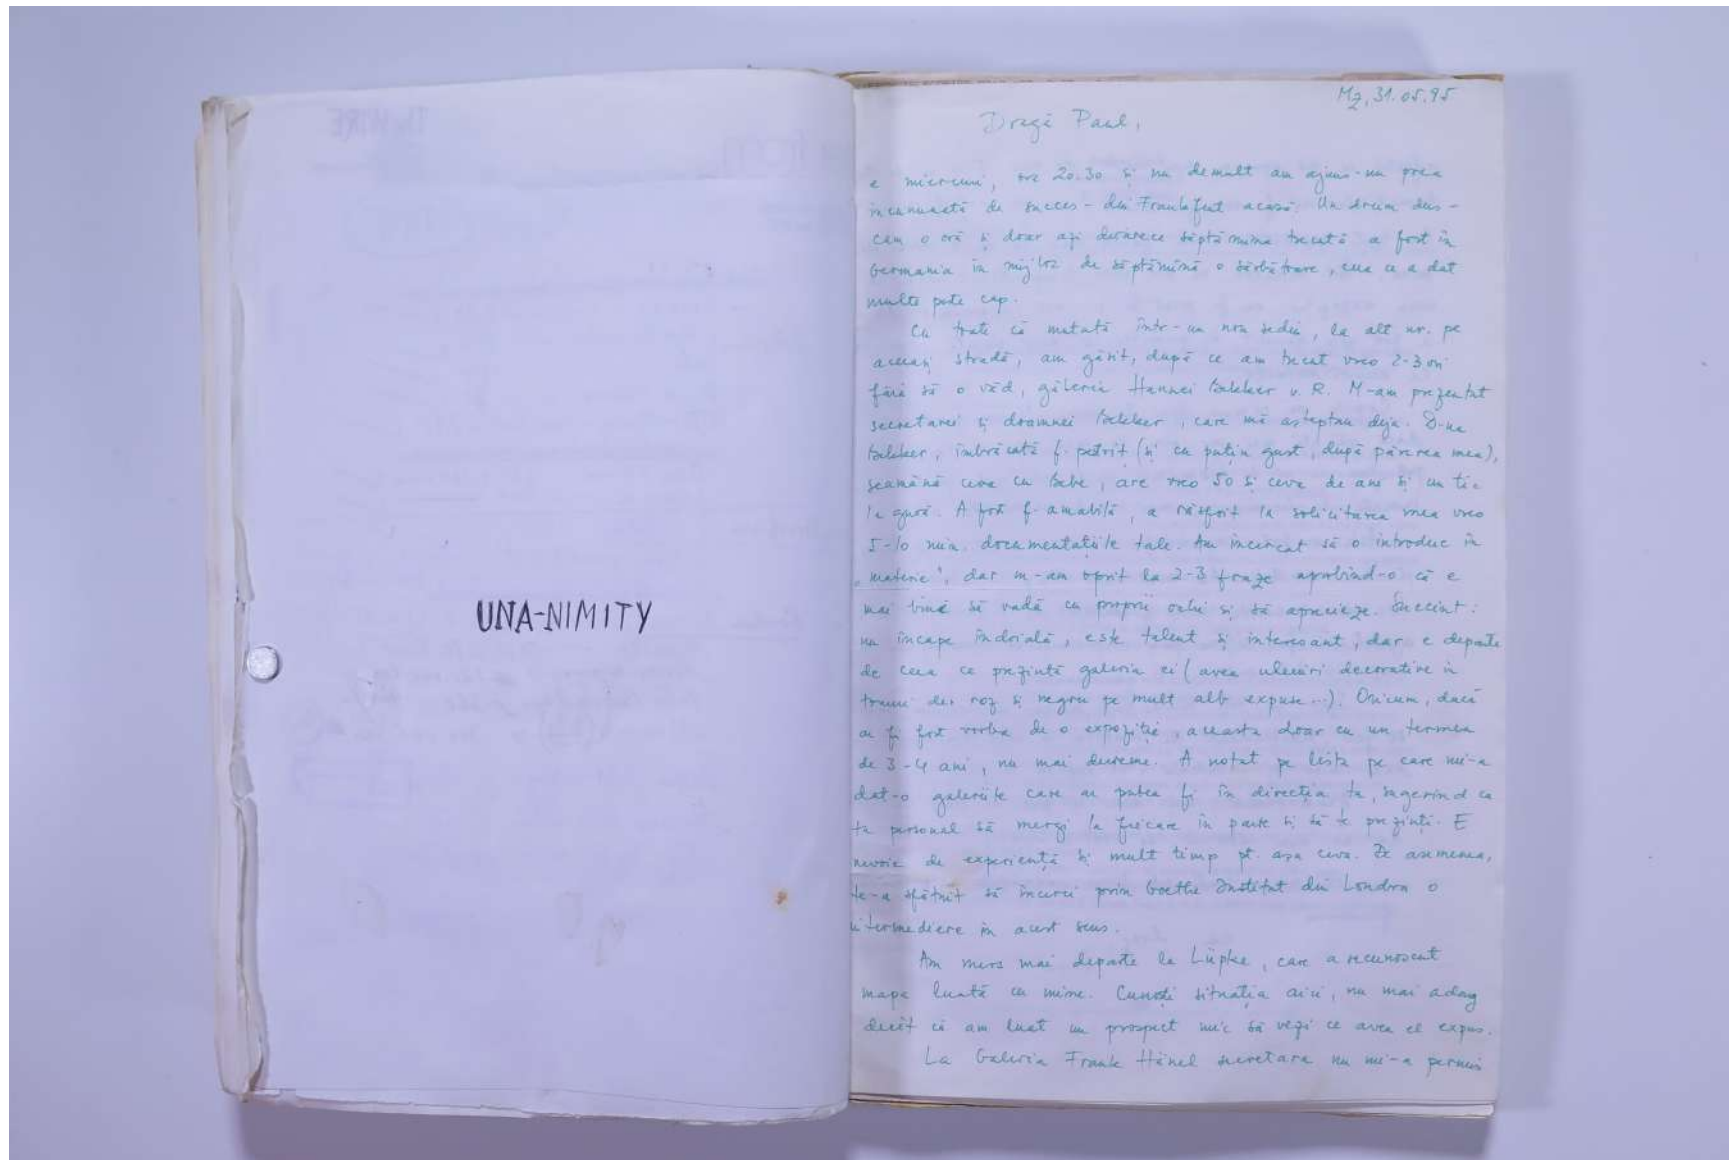 UNA-NIMITY
Mz, 31.05.95
Dragă Paul,
e miercuri, ora 20.30 și nu demult am ajuns - nu prea
încununată de succes - din Frankfurt acasă. Un drum dus -
cam o oră și doar azi deoarece săptămîna trecută a fost în
Germania în mijloc de săptămînă o sărbătoare, cea ce a dat
multe peste cap.
Cu toate că mutată într-un nou sediu, la alt nr. pe
aceeași stradă, am găsit, după ce am trecut vreo 2-3 ori
fără să o văd, galeria Hannei Bekker v. R. M-am prezentat
secretarei și doamnei Bekker, care mă așteptau deja. D-na
Bekker, îmbrăcată f. (și cu puțin gust, după părerea mea),
seamănă ceva cu Bebe, are vreo 50 și ceva de ani și un tic
la gură. A fost f. amabilă, a răsfoit la solicitarea mea vreo
5-10 min. documentațiile tale. Am încercat să o introduc în
„materie", dar m-am oprit la 2-3 fraze aprobînd-o că e
mai bine să vadă cu proprii ochi și să aprecieze. Succint:
nu încape îndoială, este talent și interesant, dar e departe
de ceea ce prezintă galeria ei (avea uleiuri decorative în
tonuri de roz și negru pe mult alb expuse...). Oricum, dacă
ar fi fost vorba de o expoziție, aceasta doar cu un termen
de 3-4 ani, nu mai devreme. A notat pe lista pe care mi-a
dat-o galeriile care ar putea fi în direcția ta, sugerînd ca
tu personal să mergi la fiecare în parte și să te prezinți. E
nevoie de experiență și mult timp pt. așa ceva. De asemenea,
te-a sfătuit să încerci prin Goethe Institut din Londra o
intermediere în acest sens.
Am mers mai departe la Lüpke, care a recunoscut
mapa luată cu mine. Cunoști situația aici, nu mai adaug
decît că am luat un prospect mic să vezi ce avea el expus.
La Galeria Frank Hänel secretara nu mi-a permis